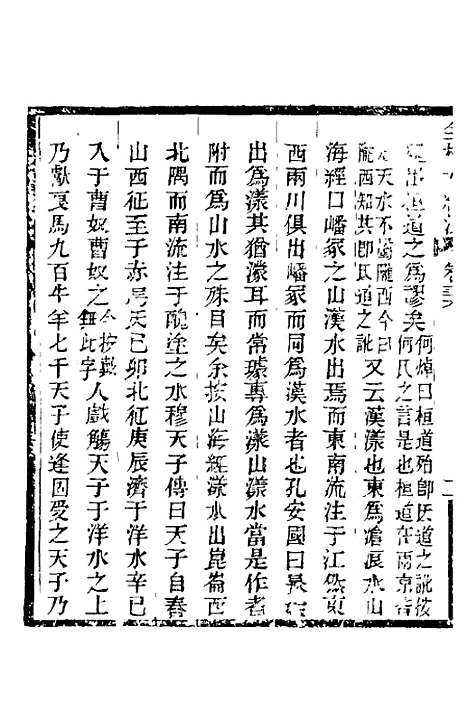 出桓道之爲謬矣何焯曰桓道殆即氐道之訛按何氏之言是也桓道在兩京皆
天水不屬隴西今曰隴西知其即氐道之訛又云漢漾也東爲滄浪水山
海經曰嶓冢之山漢水出焉而東南流注于江然東
西兩川俱出嶓冢而同爲漢水者也孔安國曰泉始
出爲漾其猶濛耳而常璩專爲漾山漾水當是作者
附而爲山水之殊目矣余按山海經漾水出崑崙西
北隅而南流注于醜塗之水穆天子傳曰天子自舂
山西征至于赤烏氏己卯北征庚辰濟于洋水辛巳
入于曹奴曹奴之今按戴無此字人戲觴天子于洋水之上
乃獻良馬九百牛羊七千天子使逢固受之天子乃